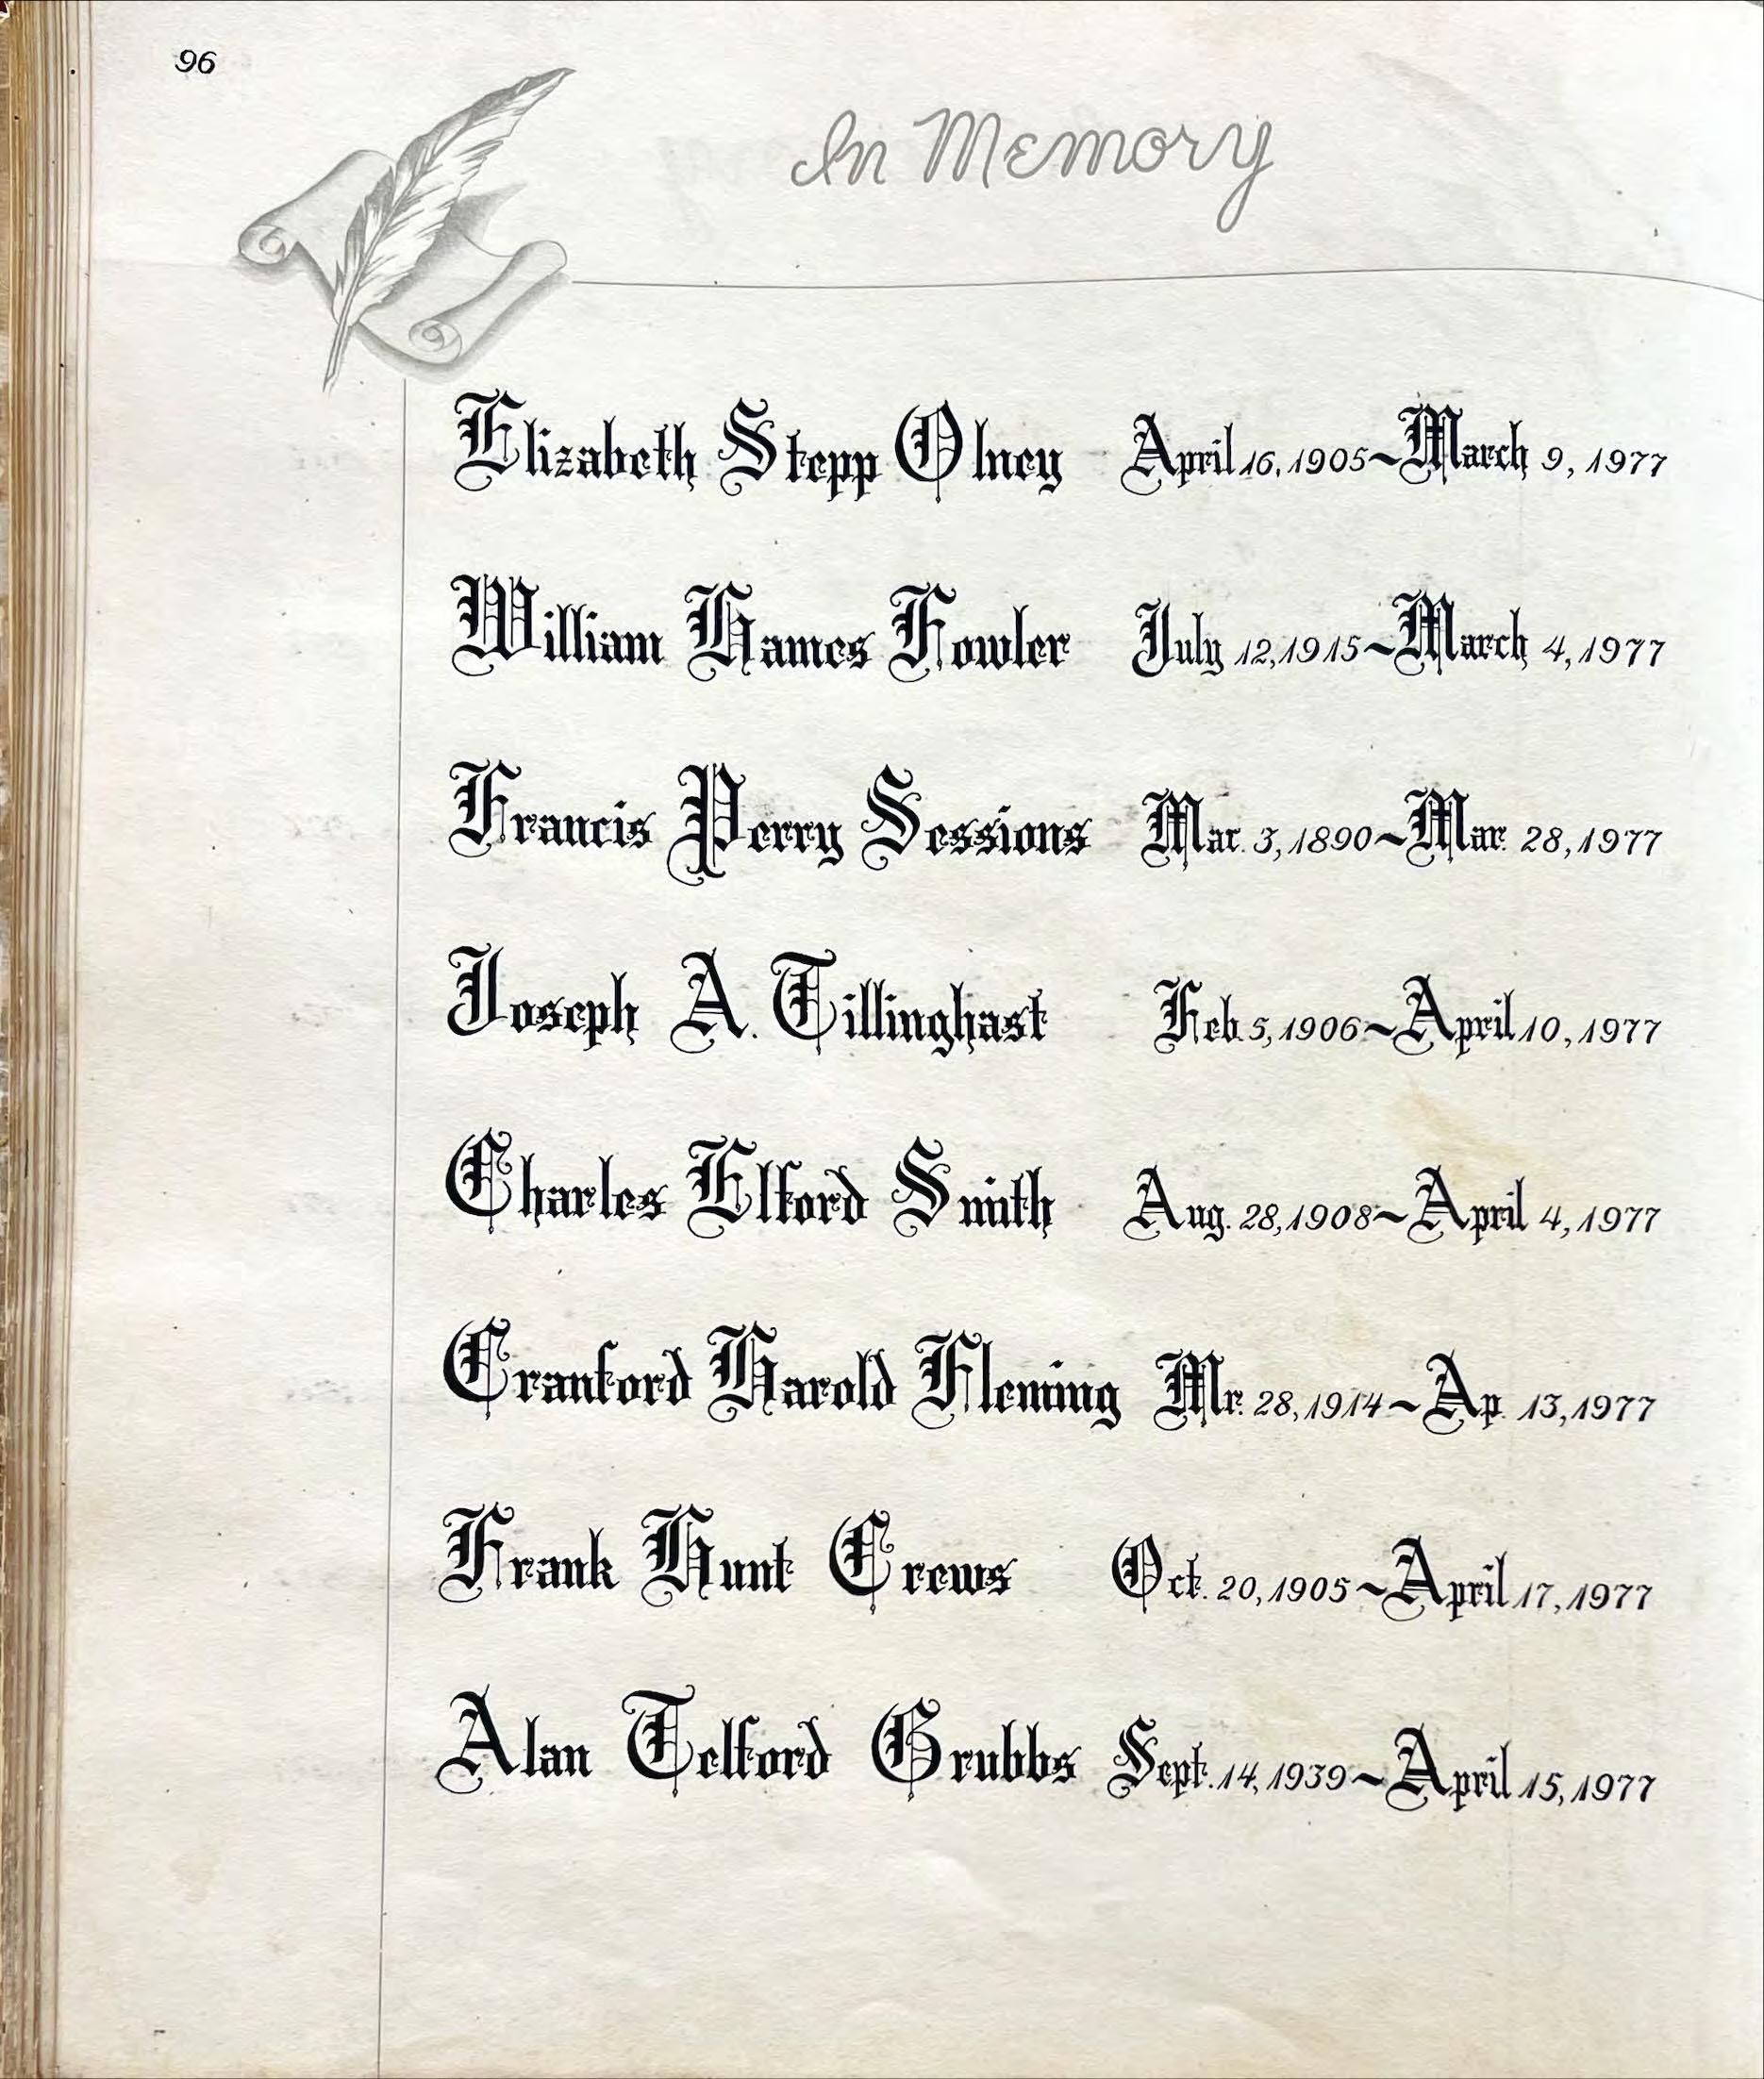 96
In Memory
Elizabeth Stepp Olney April 16, 1905~March 9, 1977
William Hames Fowler July 12, 1915~March 4, 1977
Francis Perry Sessions Mar. 3, 1890~Mar. 28, 1977
Joseph A. Tillinghast Feb. 5, 1906~April 10, 1977
Charles Elford Smith Aug. 28, 1908~April 4, 1977
Cranford Harold Fleming Mr. 28, 1914~Ap. 13, 1977
Frank Hunt Crews Oct. 20, 1905~April 17, 1977
Alan Telford Grubbs Sept. 14, 1939~April 15, 1977